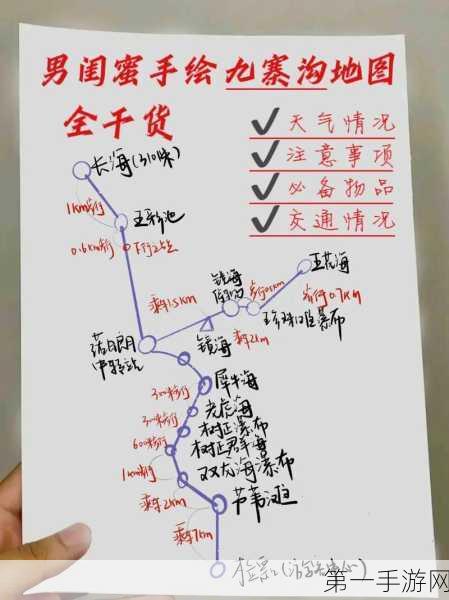 男闺蜜手绘九寨沟地图
全干货
✓天气情况
✓注意事项
✓必备物品
✓交通情况
长海(3101米)
1km步行
五彩池
0.6km步行
下行2站
五花海
镜海
乘车1.5km
步行0.7km
珍珠滩瀑布
乘车2km
诺日朗
中转站
镜海
犀牛海
300米步行
老虎海
300米步行
树正瀑布
600米步行
树正群海
双龙海瀑布
1km步行
乘车2km
芦苇滩
乘车7km
第一手游网